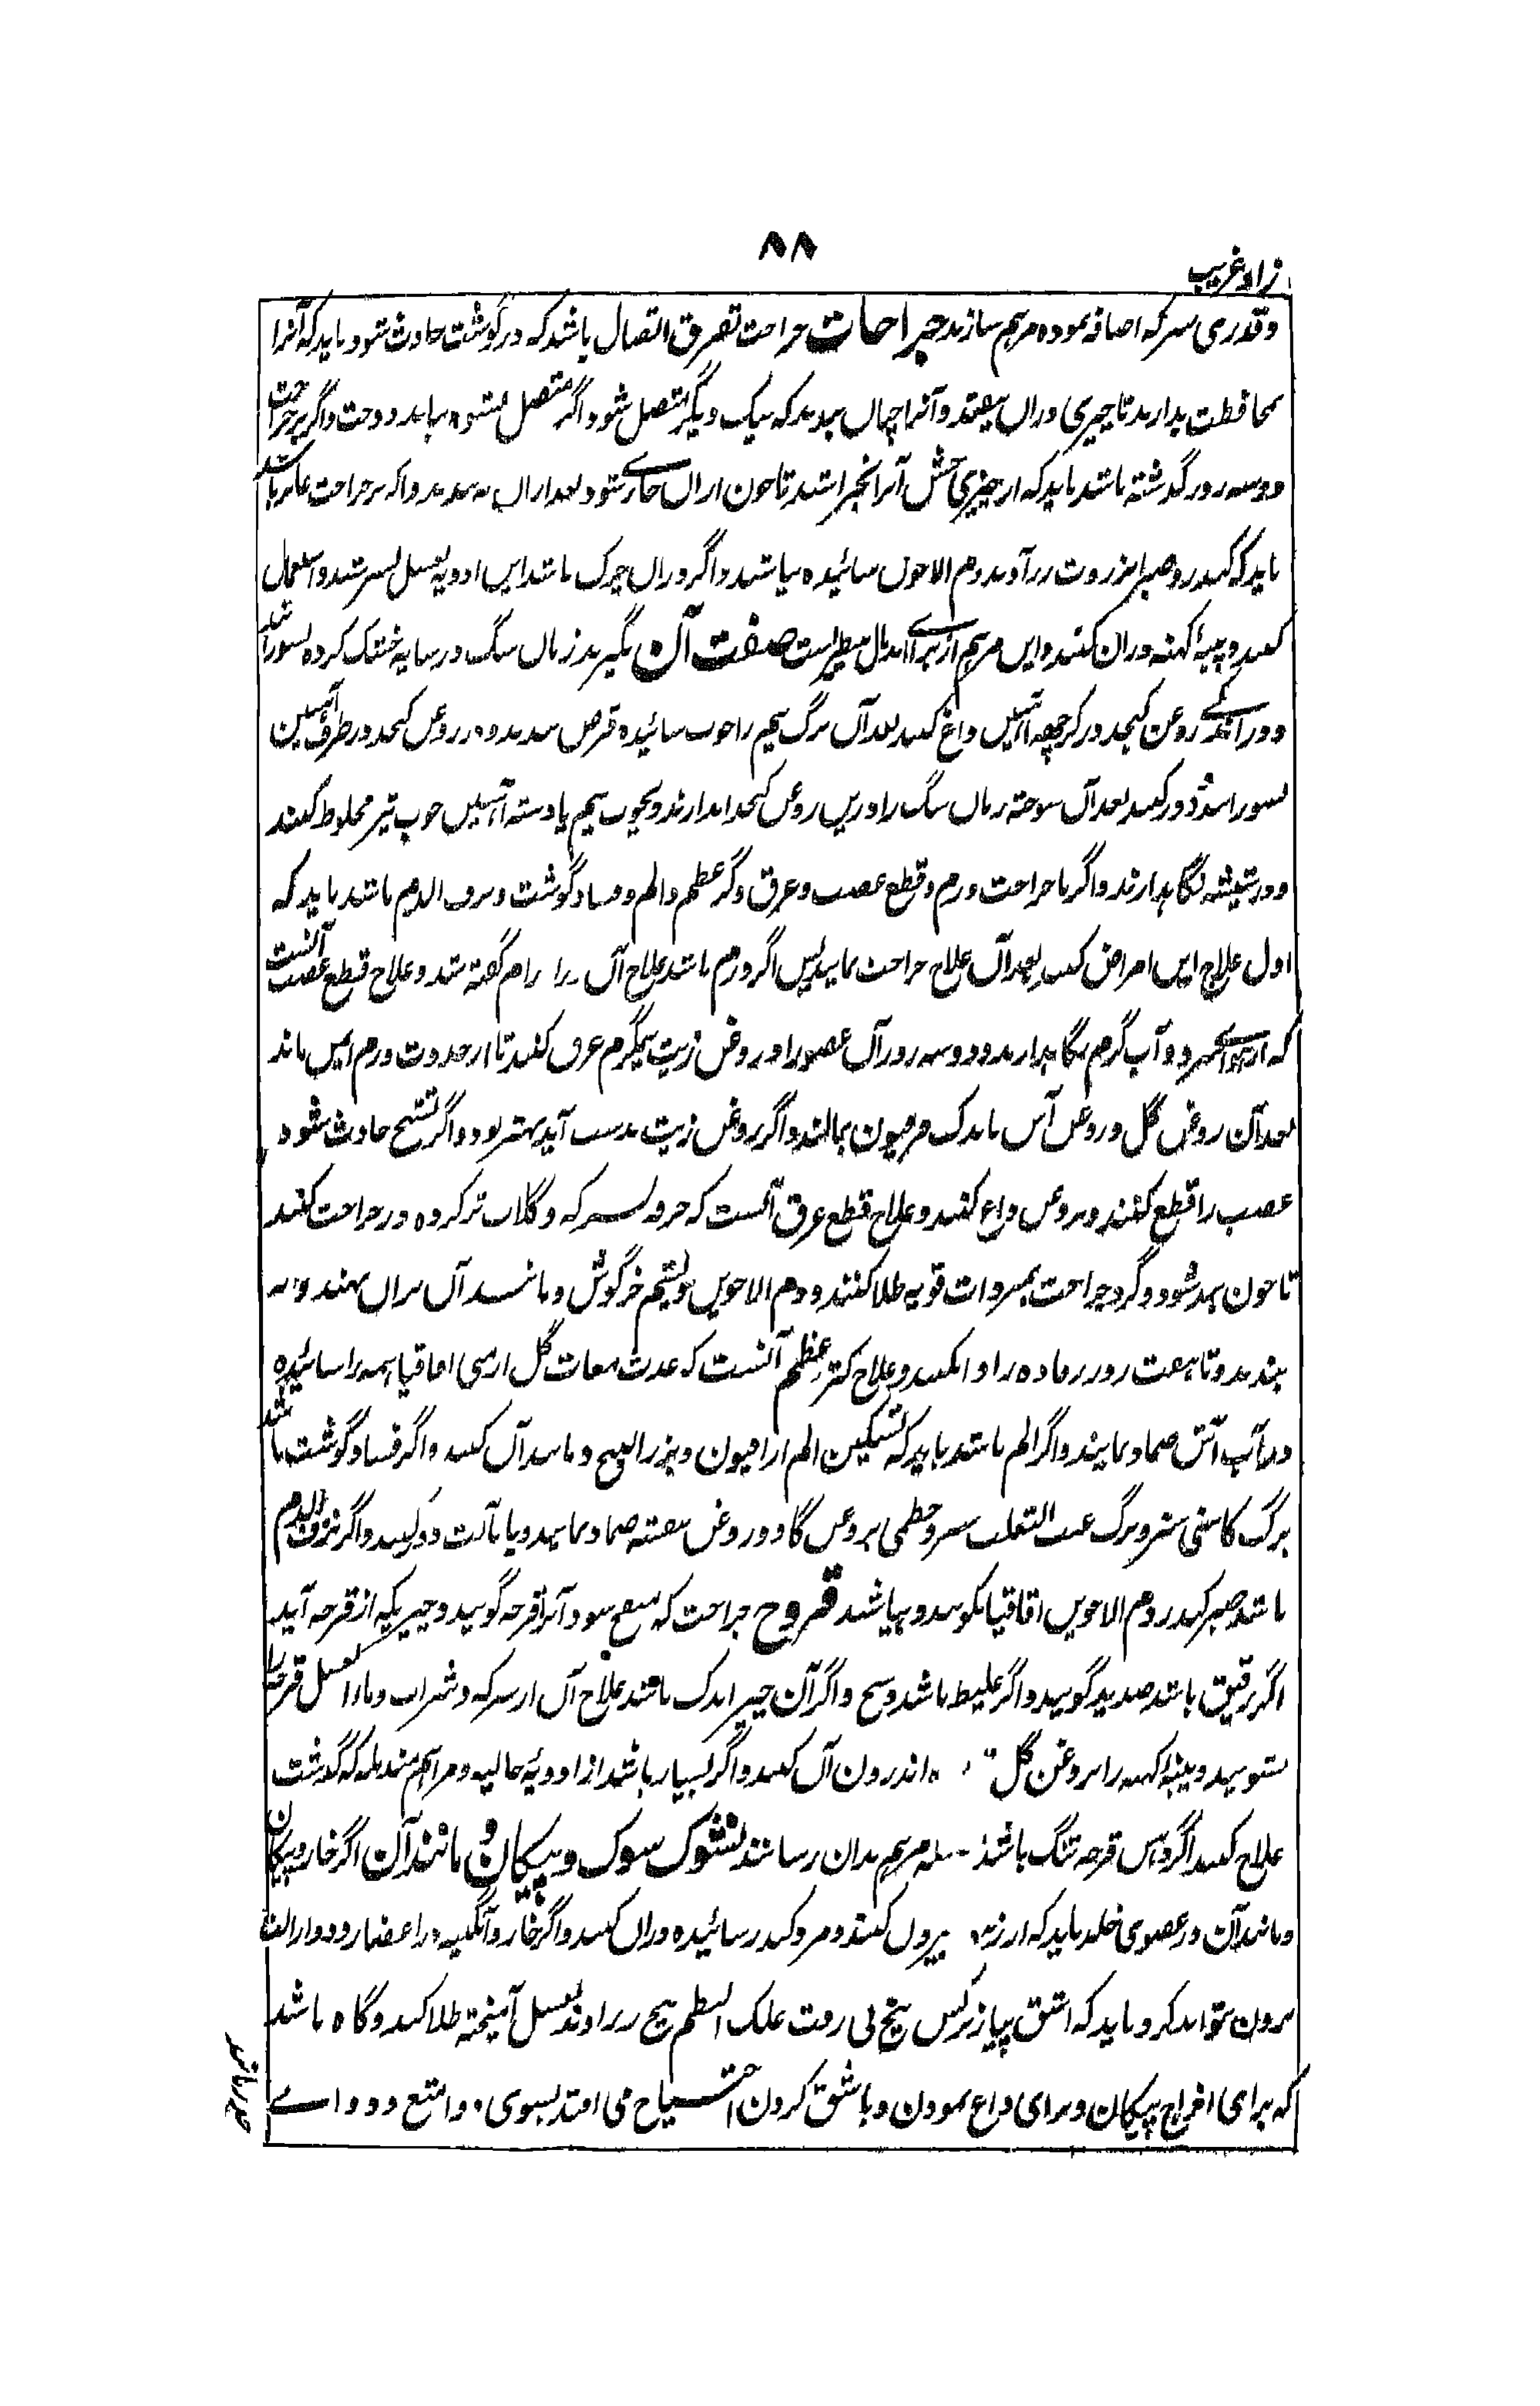 ۸۸
زاد غریب
و قدری سرکه اضافه نموده مرهم سازند جراحات جراحت تفرق اتصال باشد که در گوشت حادث شود باید که آنرا
محافظت بدارند تا چیزی دران نیفتد و آنرا چنان ببندند که بیک دیگر متصل شود اگر متصل نشود بباید دوخت و اگر بر جراحت
دو سه روز گذشته باشد باید که از چیزی خشن آنرا بخراشند تا خون ازان جاری شود بعد ازان به بندند و اگر جراحت غائر باشد
باید که کندر و صبر انزروت دم الاخوین سائیده بپاشند و اگر دران چرک باشد این ادویه بعسل بسرشند و استعمال
کنند و پنبهٔ کهنه دران کنند و این مرهم از برای اندمال بینظیر است صفت آن بگیرند زبان سگ در سایه خشک کرده بسوزانند
و در اندکے روغن کنجد در کرچهه آهنین داغ کنند بعد آن برگ نیم را خوب سائیده قرص بندند و در روغن کنجد در ظرف آهنین
بسوزانند و دور کنند بعد آن سوخته زبان سگ را درین روغن کنجد اندازند و بچوب نیم یا دسته آهنین خوب تیز مخلوط کنند
و در شیشه نگاهدارند و اگر با جراحت ورم و قطع عصب و عرق و کسر عظم و الم و فساد گوشت و نزف الدم باشد باید که
اول علاج این امراض کنند بعد آن علاج جراحت نمایند پس اگر ورم باشد علاج آن در اورام گفته شد و علاج قطع عصب آنست
که از هوای سرد و آب گرم نگاهدارند و دو سه روز آن عضو را در روغن زیت نیمگرم غرق کنند تا از حدوث ورم ایمن ماند
بعد آن روغن گل و روغن آس با اندک فرفیون بمالند و اگر روغن زیت بدست آید بهتر بود و اگر تشنج حادث شود
عصب را قطع کنند و بروغن داغ کنند و علاج قطع عرق آنست که خرقه بسرکه و گلاب تر کرده در جراحت کنند
تا خون بند شود و گرد جراحت بمبردات قویه طلا کنند و دم الاخوین و پشم خرگوش و مانند آن بران نهند و
بندند و تا هفت روز رفاده را وا نکنند و علاج کسر عظم آنست که عدس مغاث گل ارمنی اقاقیا همه را سائیده
در آب آس ضماد نمایند و اگر الم باشد باید که تسکین الم از افیون و بزر البنج و مانند آن کنند و اگر فساد گوشت باشد
برگ کاسنی سبز و برگ عنب الثعلب سبز و خطمی بروغن گاو و روغن بنفشه ضماد نمایند و یا بآلت دور کنند و اگر نزف الدم
باشد صبر کندر و دم الاخوین اقاقیا بکوبند و بپاشند قروح جراحت که متقیح شود آنرا قرحه گویند و چیزیکه از قرحه آید
اگر رقیق باشد صدید گویند و اگر غلیظ باشد وسخ و اگر آن چیز اندک باشد علاج آن از سرکه و شراب و ماء العسل قرحه را
بشویند و پنبهٔ کهنه را بروغن گل اندرون آن کنند و اگر بسیار باشد از ادویهٔ جالیه و مراهم مندمله که گذشت
علاج کنند اگر دهن قرحه تنگ باشد مرهم بدان رسانند نشوک سوک و پیکان و مانند آن اگر خار و پیکان
و مانند آن در عضوی خلد باید که از زنبور بیرون کنند و مر و کندر سائیده دران کنند و اگر خار و آبگینه در اعضا رود و از الت
بیرون نتواند کرد باید که اشق پیاز نرگس بیخ نی علک البطم بیخ زراوند بعسل آمیخته طلا کنند و گاه باشد
که برای اخراج پیکان و برای داغ نمودن و با شق کردن احتیاج می افتد و دوائے